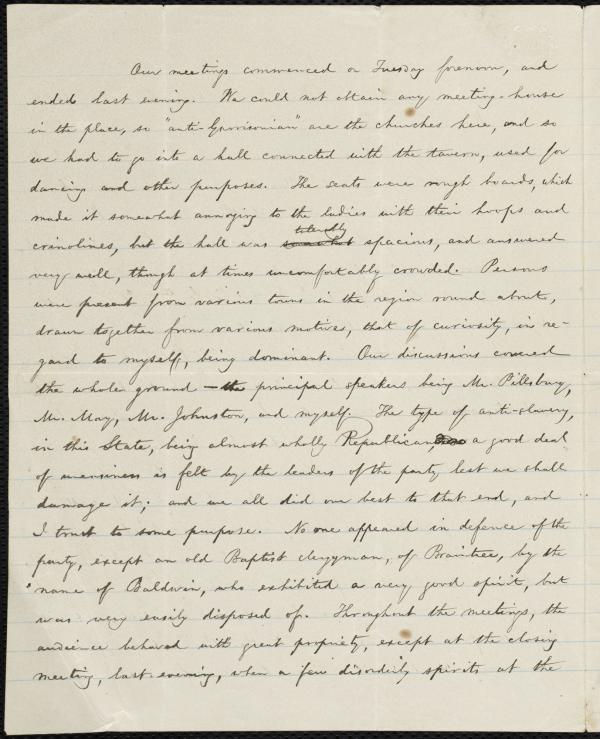 Our meetings commenced on Tuesday forenoon, and
ended last evening. We could not obtain any meeting-house
in the place, so "anti-Garrisonian" are the churches here, and so
we had to go into a hall connected with the tavern, used for
dancing and other purposes. The seats were rough boards, which
made it somewhat annoying to the ladies with their hoops and
tolerably
crinolines, but the hall was somewhat spacious, and answered
very well, though at times uncomfortably crowded. Persons
were present from various towns in the region round about,
drawn together from various motives, that of curiosity, in re-
gard to myself, being dominant. Our discussions covered
the whole ground — the principal speakers being Mr. Pillsbury,
Mr. May, Mr. Johnston, and myself. The type of anti-slavery,
in this State, being almost wholly Republican, a good deal
of uneasiness is felt by the leaders of the party lest we shall
damage it; and we all did our best to that end, and
I trust to some purpose. No one appeared in defence of the
party, except an old Baptist clergyman, of Braintree, by the
name of Baldwin, who exhibited a very good spirit, but
was very easily disposed of. Throughout the meetings, the
audience behaved with great propriety, except at the closing
meeting, last evening, when a few disorderly spirits at the